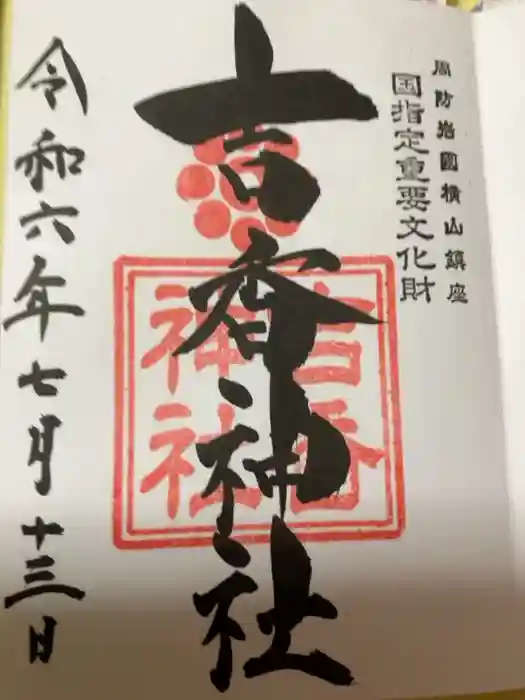 周防岩國横山鎮座
国指定重要文化財
吉香神社
吉香
神社
令和六年七月十三日